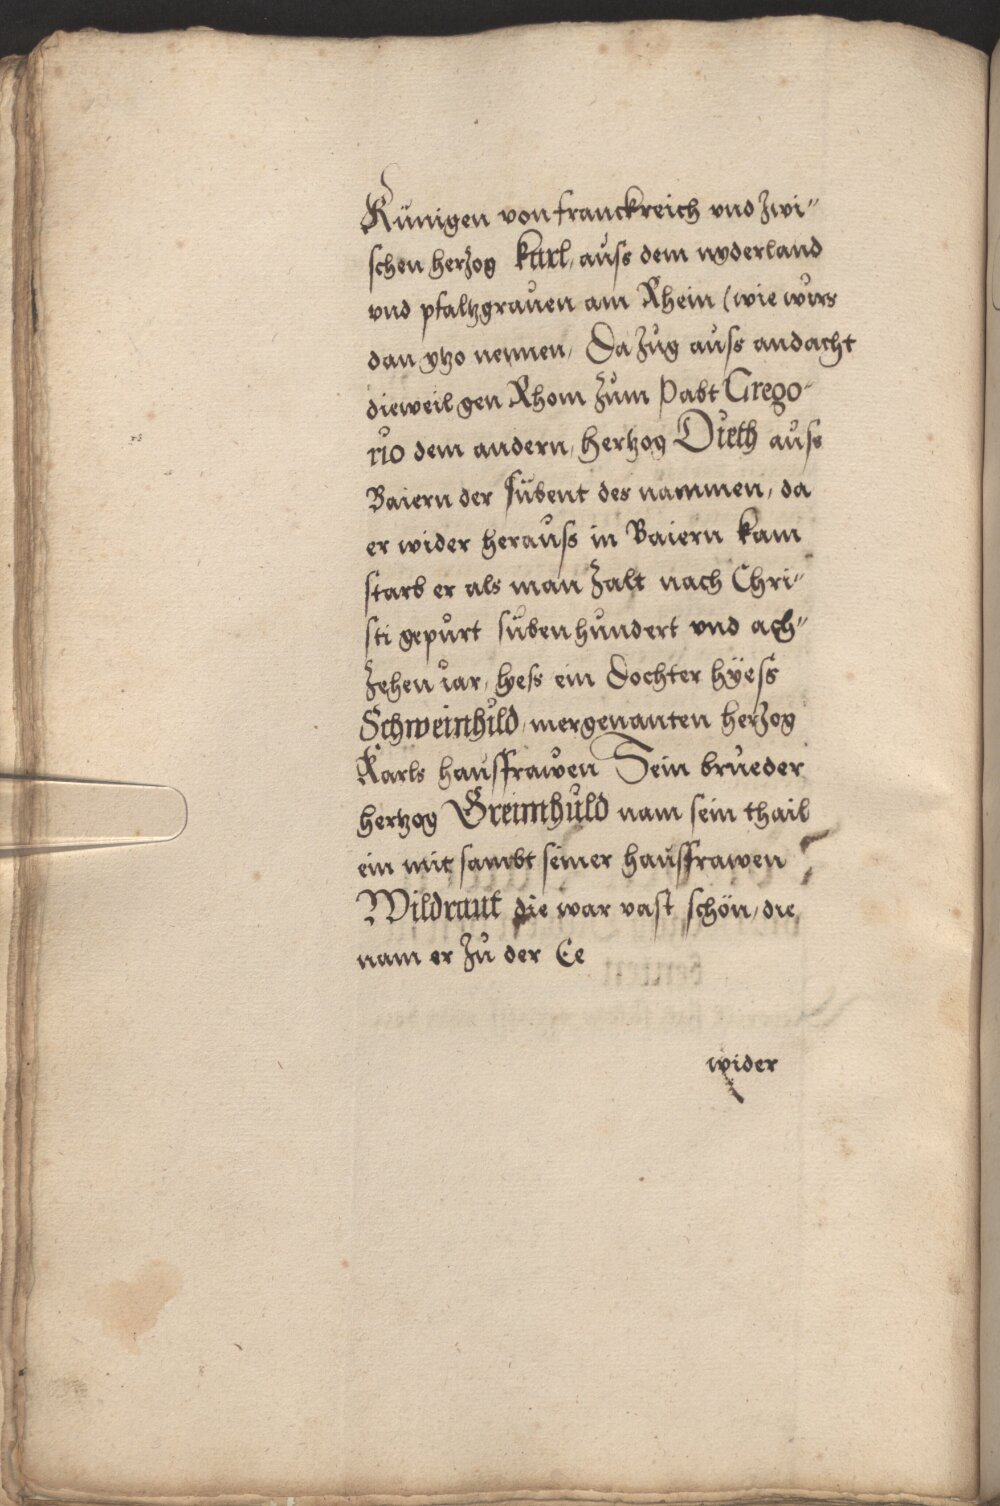 Künigen von franckreich vnd zwi=
schen herzog karl, auss dem nyderland
vnd pfaltzgrauen am Rhein (wie wirs
dan ytzo nennen, Da zug auss andacht
dieweil gen Rhom zum Pabt Grego=
rio dem andern, hertzog Dieth auss
Baiern der sübent des nammen, da
er wider herauss in Baiern kam
starb er als man zalt nach Chri=
sti gepurt süben hundert vnd ach=
zehen iar, hess ein dochter hyess
Schweinhild, mergenanten herzog
Karls haussfrawen Sein brueder
hertzog Greimhuld nam sein thail
ein mit sambt seiner haussfrawen
Wildraut die war vast schön, die
nam er zu der Ee
wider